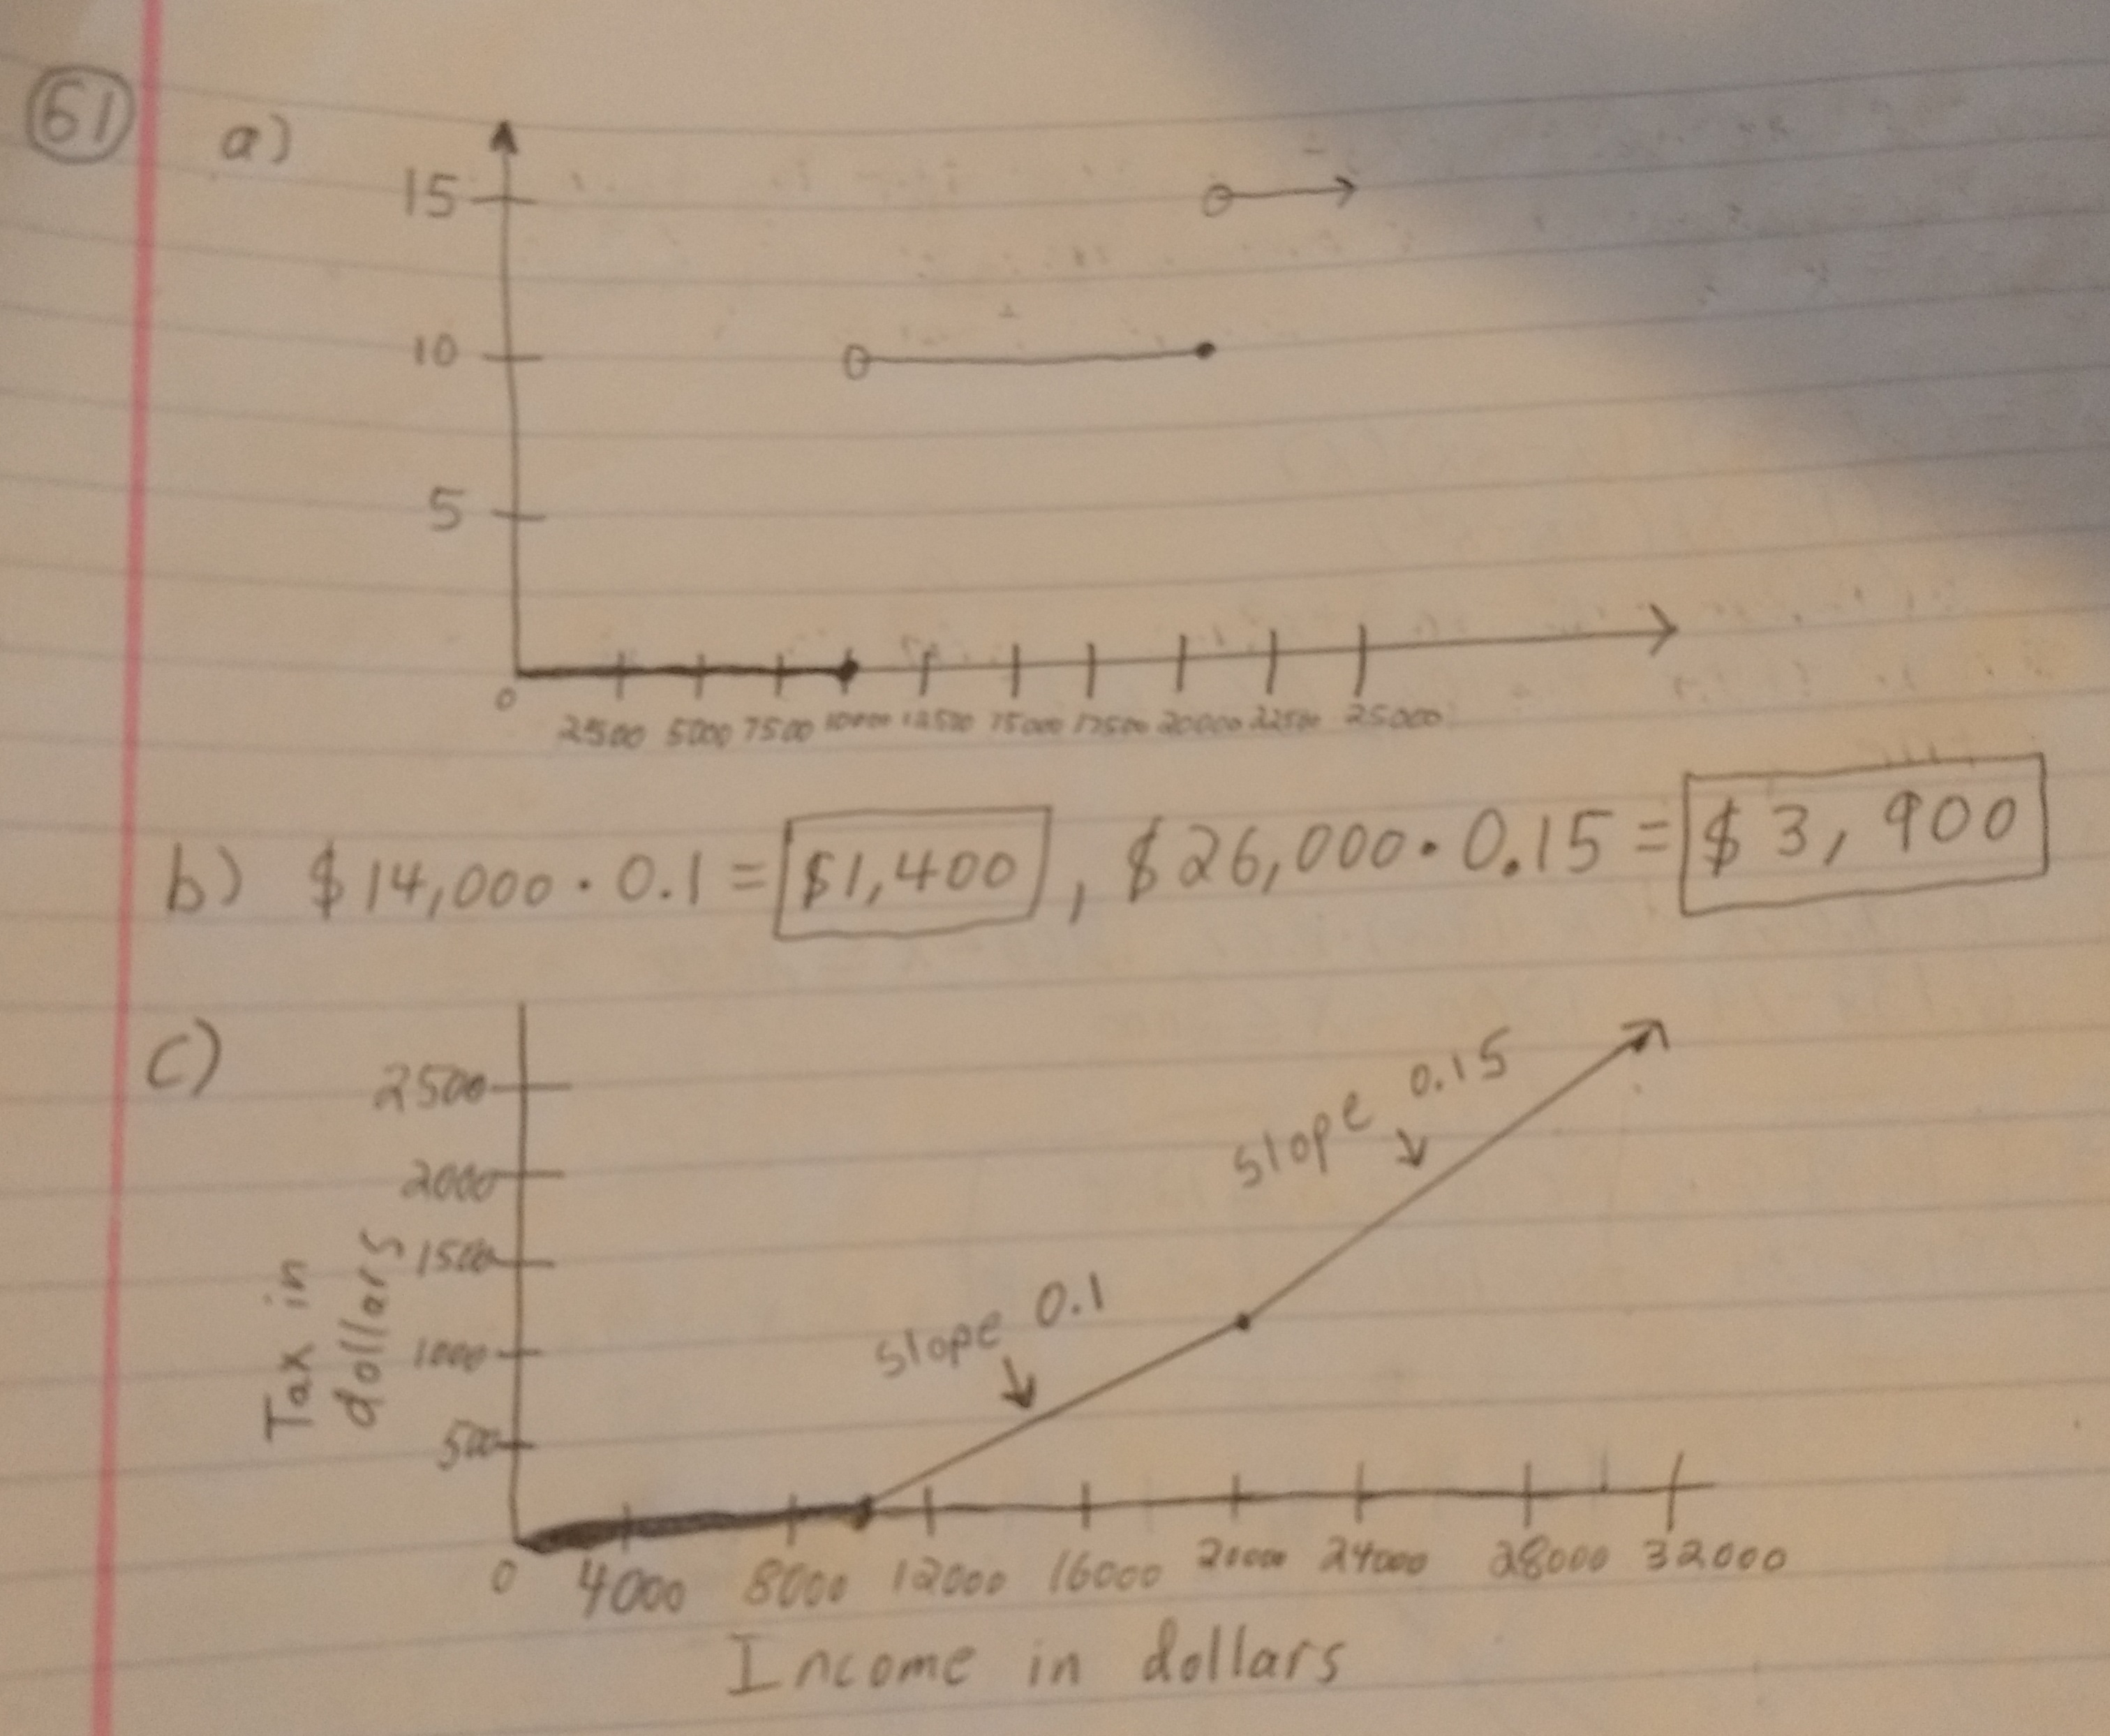 61 a)
15
10
5
0 2500 5000 7500 10000 12500 15000 17500 20000 22500 25000
b) $14,000 · 0.1 = $1,400 , $26,000 · 0.15 = $3,900
c)
2500
2000
1500
1000
500
Tax in
dollars
slope 0.1
slope 0.15
0 4000 8000 12000 16000 20000 24000 28000 32000
Income in dollars